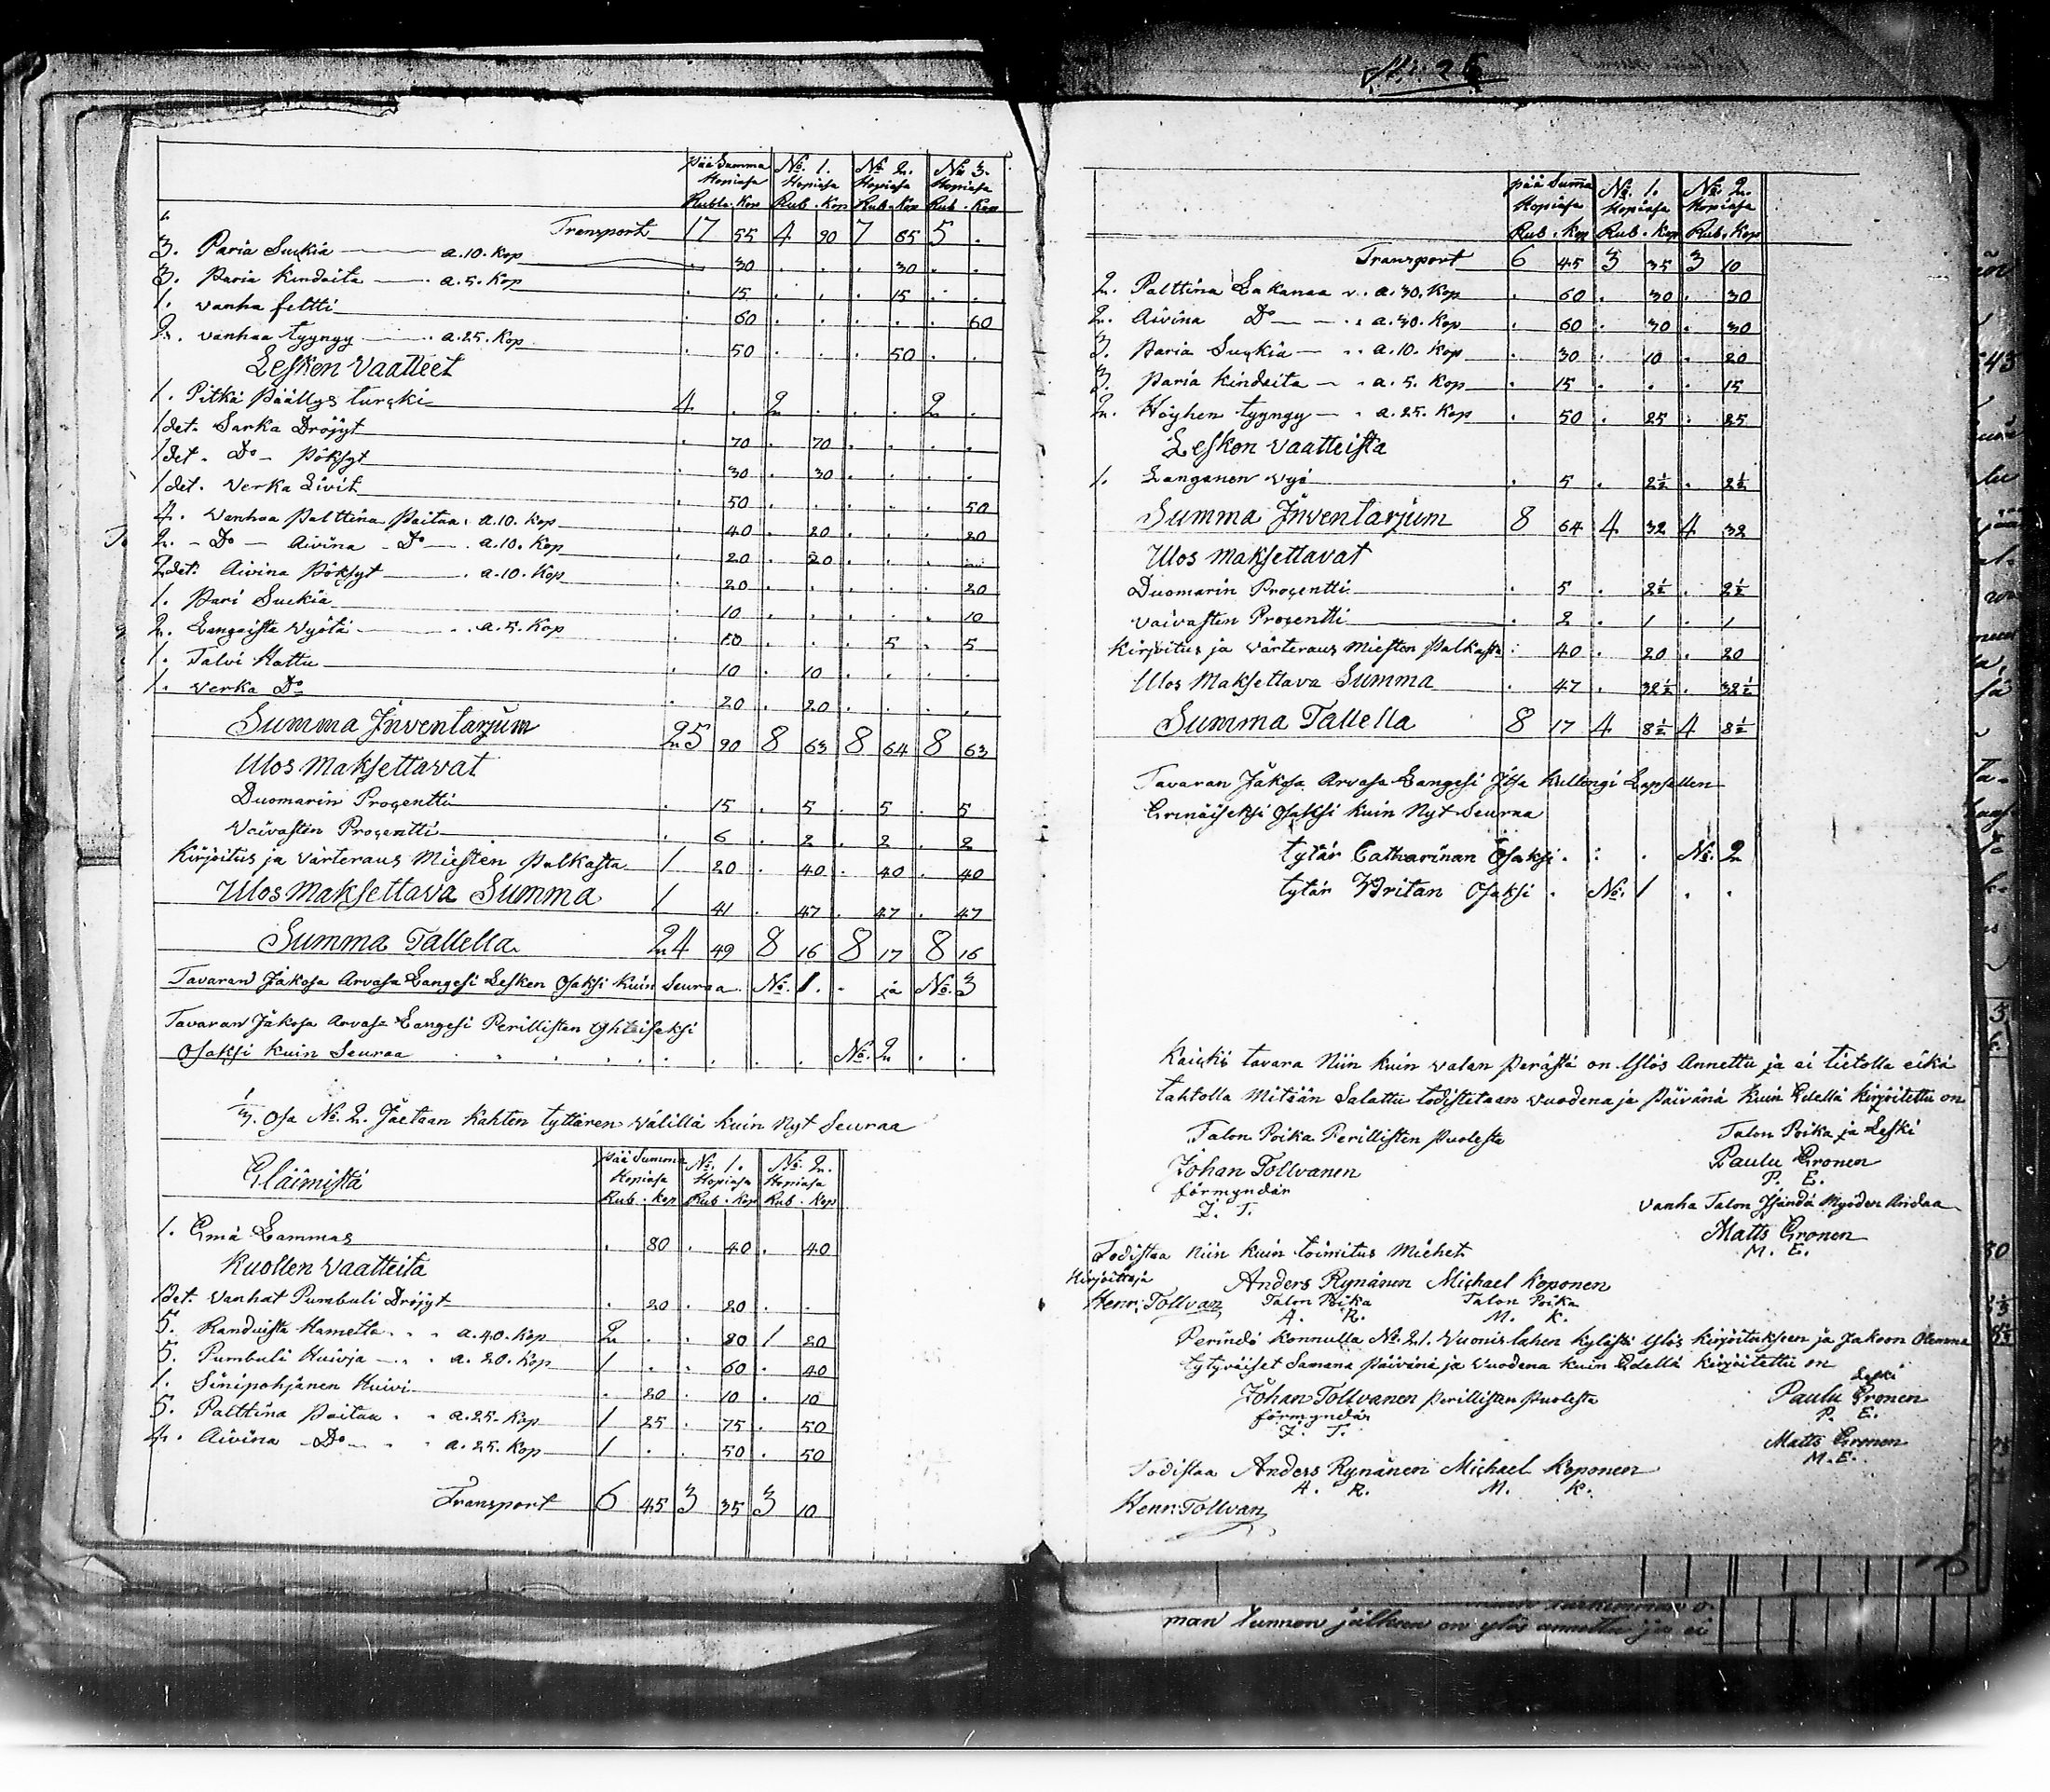 pää Summa No. 1. No 2. No 3.
Hopiasa Hopiasa Hopiasa Hopiasa
Rubla. Kop Rub. Kop Rub. Kop Rub. Kop
Transport 17 55 4 90 7 85 5 .
3. Paria Suckia a. 10. Kop . 30 . . . 30 . .
3. Paria Kindaita a. 5. Kop . 15 . . . 15 . .
1. vanha feltti . 60 . . . . . 60
2. vanhaa tyyngy a. 25. Kop . 50 . . . 50 . .
Lesken Vaatteet
1. Pitkä Päällys turcki 4 . 2 . . . 2 .
1 det. Sarka Dröjyt . 70 . 70 . . . .
1 det. Do Pöksyt . 30 . 30 . . . .
1 det. Verka Livit . 50 . . . . . 50
4. Vanhaa Palttina Paitaa. a. 10. Kop . 40 . 20 . . . 20
2. Do Aivina Do a. 10. Kop . 20 . 20 . . . .
2 det. Aivina Pöksyt a. 10. Kop . 20 . . . . . 20
1. Pari Suckia . 10 . . . . . 10
2. Langaista Wyötä a. 5. Kop . 10 . . . 5 . 5
1. Talvi Hattu . 10 . 10 . . . .
1. Verka Do . 20 . 20 . . . .
Summa Inventarjum 25 90 8 63 8 64 8 63
Ulos Maksettavat
Duomarin Procentti . 15 . 5 . 5 . 5
Vaivasten Procentti . 6 . 2 . 2 . 2
Kirjoitus ja Värteraus Miesten Palkasta 1 20 . 40 . 40 . 40
Ulos Maksettava Summa 1 41 . 47 . 47 . 47
Summa Tallella 24 49 8 16 8 17 8 16
Tavaran Jakosa Arvasa Langesi Lesken Osaksi Kuin Seuraa No. 1. . ja No. 3
Tavaran Jakosa Arvasa Langesi Perillisten Yhteiseksi
Osaksi Kuin Seuraa . . . . . . . No. 2 . .
Osa No. 2. Jaetaan Kahten tyttären Välillä kuin Nyt Seuraa
Eläimistä pää Summa No. 1. No. 2.
Hopiasa Hopiasa Hopiasa
Rub. Kop Rub. Kop Rub. Kop
1. Emä Lammas . 80 . 40 . 40
Kuollen Vaatteita
1 det. Vanhat Pumbuli Dröjyt . 20 . 20 . .
5. Randuista Hametta . . a. 40. Kop 2 . . 80 1 20
5. Pumbuli Huivja . . a. 20. Kop 1 . . 60 . 40
1. Sinipohjanen Huivi . 20 . 10 . 10
5. Palttina Paitaa . . a. 25. Kop 1 25 . 75 . 50
4. Aivina Do . a. 25. Kop 1 . . 50 . 50
Transport 6 45 3 35 3 10
pää Summa No. 1. No. 2.
Hopiasa Hopiasa Hopiasa
Rub. Kop Rub. Kop Rub. Kop
Transport 6 45 3 35 3 10
2. Palttina Lakanaa . a. 30. Kop . 60 . 30 . 30
2. Aivina Do . a. 30. Kop . 60 . 30 . 30
3. Paria Suckia . . a. 10. Kop . 30 . 10 . 20
3. Paria Kindaita . a. 5. Kop . 15 . . . 15
2. Höyhen tyyngy . a. 25. Kop . 50 . 25 . 25
Lesken Vaatteista
1. Langanen Wyö . 5 . 2½ . 2½
Summa Inventarjum 8 64 4 32 4 32
Ulos Maksettavat
Duomarin Procentti . 5 . 2½ . 2½
Vaivasten Procentti . 2 . 1 . 1
Kirjoitus ja Värteraus Miesten Palkasta . 40 . 20 . 20
Ulos Maksettava Summa . 47 . 32½ . 32½
Summa Tallella 8 17 4 8½ 4 8½
Tavaran Jakosa Arvasa Langesi Itse kullengi Lapsellen
Erinäiseksi Osaksi kuin Nyt Seuraa
tytär Catharinan Osaksi . : . No. 2
tytär Britan Osaksi . No. 1 . .
Kaicki tavara Niin kuin Valan Perästä on Ylös Annettu ja ei tietolla eikä
tahtolla Mitään Salattu todistetaan Vuodena ja Päivänä Kuin Edellä Kirjoitettu on
Talon Poika Perillisten Puolesta Talon Poika ja Leski
Johan Tollvanen Paulu Eronen
förmyndär P. E.
J. T. Vanha Talon Isändä Myöden Andaa
Matts Eronen
Todistaa Niin Kuin toimitus Miehet M. E.
Kirjoittaja Anders Rynänen Michael Koponen
Henr: Tollvan Talon Poika Talon Poika
A. R. M. K.
Perindö Konnulla No. 21. Vuonislahen Kylässä Ylös kirjoitukseen ja Jakoon Olemma
tytyväiset Samana Päivänä ja Vuodena kuin Edellä Kirjoitettu on
Leski
Johan Tollvanen Perillisten Puolesta Paulu Eronen
förmyndär P. E.
J. T. Matts Eronen
M. E.
Todistaa Anders Rynänen Michael Koponen
A. R. M. K.
Henr: Tollvan
man tunnon jälkeen on ylös annettu ja ei